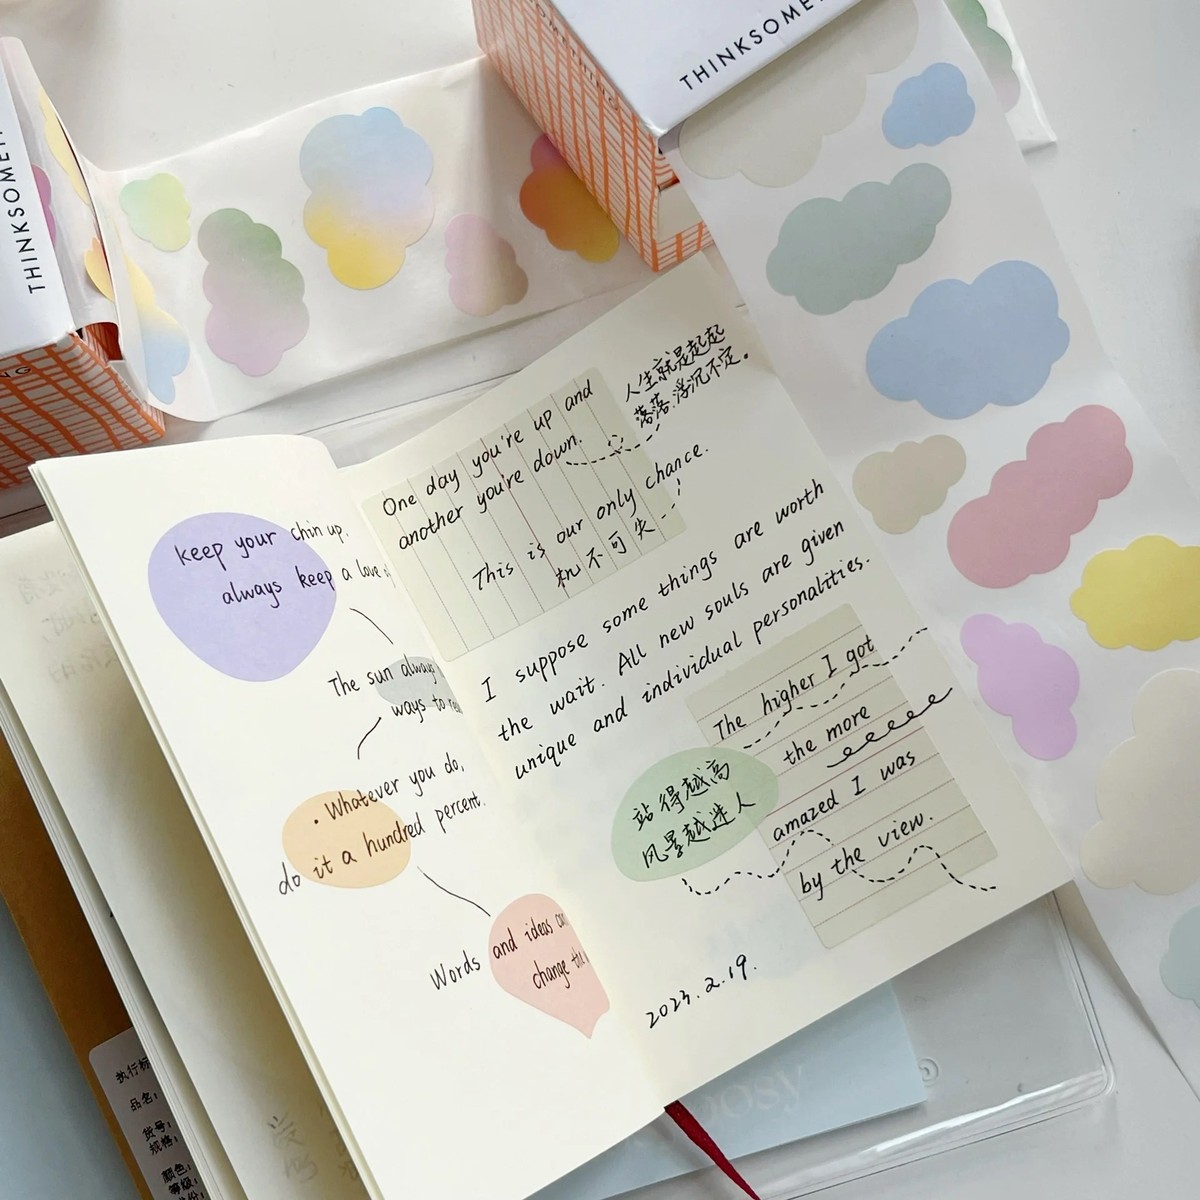 THINKSOMETH
THINKSOMETH
keep your chin up.
always keep a love
The sun always
ways to
Whatever you do,
do it a hundred percent.
Words and ideas can
change the
One day you're up and
another you're down.
人生就是起起
落落,浮沉不定。
This is our only chance.
机不可失
I suppose some things are worth
the wait. All new souls are given
unique and individual personalities.
The higher I got
the more
amazed I was
by the view.
站得越高
风景越迷人
2023.2.19.
执行标
品名:
货号:
规格:
颜色:
等级:
oosy